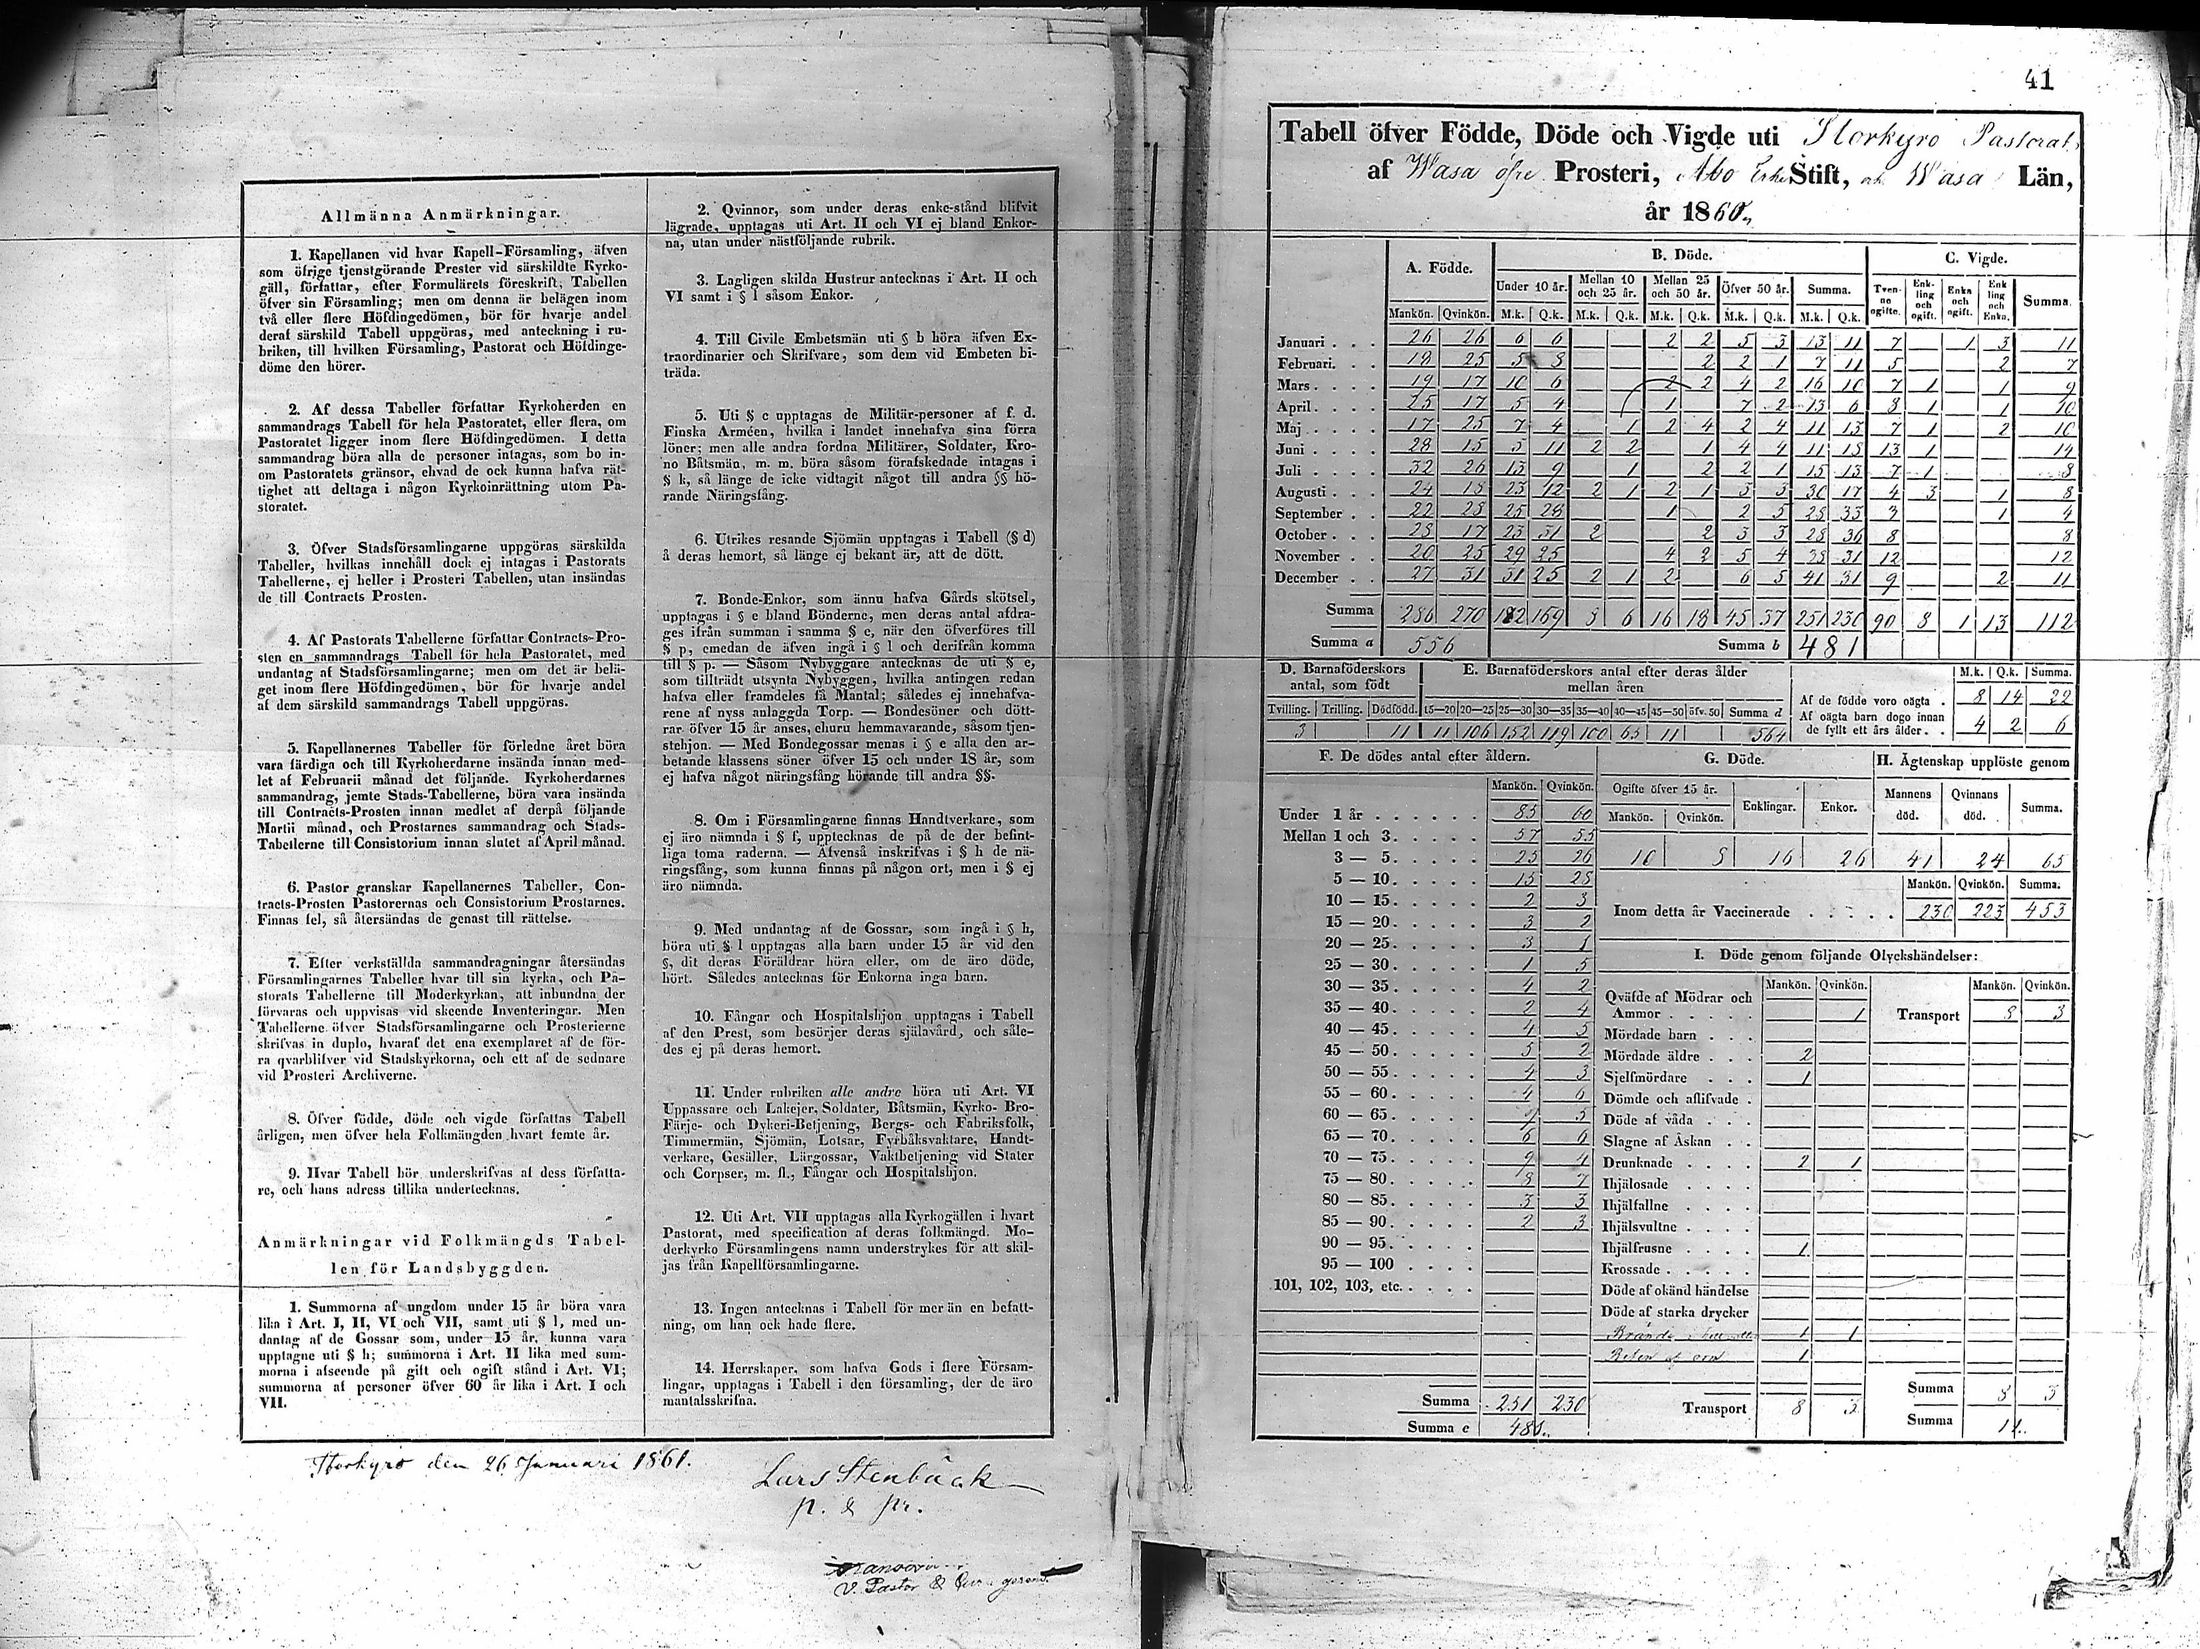 Allmänna Anmärkningar.
1. Kapellanen vid hvar Kapell-Församling, äfven
som öfrige tjenstgörande Prester vid särskildte Kyrko-
gäll, författar, efter Formulärets föreskrift, Tabellen
öfver sin Församling; men om denna är belägen inom
två eller flere Höfdingedömen, bör för hvarje andel
deraf särskild Tabell uppgöras, med anteckning i ru-
briken, till hvilken Församling, Pastorat och Höfdinge-
döme den hörer.
2. Af dessa Tabeller författar Kyrkoherden en
sammandrags Tabell för hela Pastoratet, eller flera, om
Pastoratet ligger inom flere Höfdingedömen. I detta
sammandrag böra alla de personer intagas, som bo in-
om Pastoratets gränsor, ehvad de ock kunna hafva rät-
tighet att deltaga i någon Kyrkoinrättning utom Pa-
storatet.
3. Öfver Stadsförsamlingarne uppgöras särskilda
Tabeller, hvilkas innehåll dock ej intages i Pastorats
Tabellerne, ej heller i Prosteri Tabellen, utan insändas
de till Contracts Prosten.
4. Af Pastorats Tabellerne författar Contracts-Pro-
sten en sammandrags Tabell för hela Pastoratet, med
undantag af Stadsförsamlingarne; men om det är belä-
get inom flere Höfdingedömen, bör för hvarje andel
af dem särskild sammandrags Tabell uppgöras.
5. Kapellanernes Tabeller för förledne året böra
vara färdiga och till Kyrkoherdarne insända innan med-
let af Februarii månad det följande. Kyrkoherdarnes
sammandrag, jemte Stads-Tabellerne, böra vara insända
till Contracts-Prosten innan medlet af derpå följande
Martii månad, och Prostarnes sammandrag och Stads-
Tabellerne till Consistorium innan slutet af April månad.
6. Pastor granskar Kapellanernes Tabeller, Con-
tracts-Prosten Pastorernas och Consistorium Prostarnes.
Finnas fel, så återsändas de genast till rättelse.
7. Efter verkställda sammandragningar återsändas
Församlingarnes Tabeller hvar till sin kyrka, och Pa-
storats Tabellerne till Moderkyrkan, att inbundna der
förvaras och uppvisas vid skeende Inventeringar. Men
Tabellerne öfver Stadsförsamlingarne och Prosterierne
skrifvas in duplo, hvaraf det ena exemplaret af de för-
ra qvarblifver vid Stadskyrkorna, och ett af de sednare
vid Prosteri Archiverne.
8. Öfver födde, döde och vigde författas Tabell
årligen, men öfver hela Folkmängden hvart femte år.
9. Hvar Tabell bör underskrifvas af dess författa-
re, och hans adress tillika undertecknas.
Anmärkningar vid Folkmängds Tabel-
len för Landsbyggden.
1. Summorna af ungdom under 15 år böra vara
lika i Art. I, II, VI och VII, samt uti § l, med un-
dantag af de Gossar som, under 15 år, kunna vara
upptagne uti § h; summorna i Art. II lika med sum-
morna i afseende på gift och ogift stånd i Art. VI;
summorna af personer öfver 60 år lika i Art. I och
VII.
2. Qvinnor, som under deras enke-stånd blifvit
lägrade, upptagas uti Art. II och VI ej bland Enkor-
na, utan under nästföljande rubrik.
3. Lagligen skilda Hustrur antecknas i Art. II och
VI samt i § l såsom Enkor.
4. Till Civile Embetsmän uti § b höra äfven Ex-
traordinarier och Skrifvare, som dem vid Embeten bi-
träda.
5. Uti § c upptagas de Militär-personer af f. d.
Finska Arméen, hvilka i landet innehafva sina förra
löner; men alle andra fordna Militärer, Soldater, Kro-
no Båtsmän, m. m. böra såsom förafskedade intagas i
§ k, så länge de icke vidtagit något till andra §§ hö-
rande Näringsfång.
6. Utrikes resande Sjömän upptagas i Tabell (§ d)
å deras hemort, så länge ej bekant är, att de dött.
7. Bonde-Enkor, som ännu hafva Gårds skötsel,
upptagas i § e bland Bönderne, men deras antal afdra-
ges ifrån summan i samma § e, när den öfverföres till
§ p, emedan de äfven ingå i § l och derifrån komma
till § p. — Såsom Nybyggare antecknas de uti § e,
som tillträdt utsynta Nybyggen, hvilka antingen redan
hafva eller framdeles få Mantal; således ej innehafva-
rene af nyss anlaggda Torp. — Bondesöner och dött-
rar öfver 15 år anses, churu hemmavarande, såsom tjen-
stehjon. — Med Bondegossar menas i § e alla den ar-
betande klassens söner öfver 15 och under 18 år, som
ej hafva något näringsfång hörande till andra §§.
8. Om i Församlingarne finnas Handtverkare, som
ej äro nämnda i § f, upptecknas de på de der befint-
liga toma raderna. — Äfvenså inskrifvas i § h de nä-
ringsfång, som kunna finnas på någon ort, men i § ej
äro nämnda.
9. Med undantag af de Gossar, som ingå i § h,
böra uti § l upptagas alla barn under 15 år vid den
§, dit deras Föräldrar höra eller, om de äro döde,
hört. Således antecknas för Enkorna inga barn.
10. Fångar och Hospitalshjon upptagas i Tabell
af den Prest, som besörjer deras själavård, och såle-
des ej på deras hemort.
11. Under rubriken alle andre höra uti Art. VI
Uppassare och Lakejer, Soldater, Båtsmän, Kyrko- Bro-
Färje- och Dykeri-Betjening, Bergs- och Fabriksfolk,
Timmermän, Sjömän, Lotsar, Fyrbåksvaktare, Handt-
verkare, Gesäller, Lärgossar, Vaktbetjening vid Stater
och Corpser, m. fl., Fångar och Hospitalshjon.
12. Uti Art. VII upptagas alla Kyrkogällen i hvart
Pastorat, med specification af deras folkmängd. Mo-
derkyrko Församlingens namn understrykes för att skil-
jas från Kapellförsamlingarne.
13. Ingen antecknas i Tabell för mer än en befatt-
ning, om han ock hade flere.
14. Herrskaper, som hafva Gods i flere Försam-
lingar, upptagas i Tabell i den församling, der de äro
mantalsskrifna.
Storkyro den 26 Januari 1861.
Lars Stenbäck
p. & pr.
V. Pastor &
41
Tabell öfver Födde, Döde och Vigde uti Storkyro Pastorat
af Wasa öfre Prosteri, Åbo Erke Stift, och Wasa Län,
år 1860.
A. Födde. B. Döde. C. Vigde.
Under 10 år. Mellan 10 och 25 år. Mellan 25 och 50 år. Öfver 50 år. Summa. Tven- ne ogifte. Enk- ling och ogift. Enka och ogift. Enk ling och Enka. Summa.
Mankön. Qvinkön. M.k. Q.k. M.k. Q.k. M.k. Q.k. M.k. Q.k. M.k. Q.k.
Januari . . . 26 26 6 6 2 2 5 3 13 11 7 1 3 11
Februari. . . 18 25 5 8 2 2 1 7 11 5 2 7
Mars . . . . 19 17 10 6 2 2 4 2 16 10 7 1 1 9
April . . . . 25 17 5 4 1 7 2 13 6 8 1 1 10
Maj . . . . 17 25 7 4 1 2 4 2 4 11 13 7 1 2 10
Juni . . . . 28 15 5 11 2 2 1 4 4 11 18 13 1 14
Juli . . . . 32 26 13 9 1 2 2 1 15 13 7 1 8
Augusti . . . 24 18 23 12 2 1 2 1 3 3 30 17 4 3 1 8
September . . 22 28 25 28 1 2 5 28 33 3 1 4
October . . . 28 17 23 31 2 2 3 3 28 36 8 8
November . . 20 25 29 25 4 2 5 4 38 31 12 12
December . . 27 31 31 25 2 1 2 6 5 41 31 9 2 11
Summa 286 270 182 169 8 6 16 18 45 37 251 230 90 8 1 13 112
Summa a 556 Summa b 481
D. Barnaföderskors antal, som födt
Tvilling. Trilling. Dödfödd.
3 11
E. Barnaföderskors antal efter deras ålder mellan åren
15—20 20—25 25—30 30—35 35—40 40—45 45—50 öfv. 50 Summa d
11 106 152 119 100 65 11 564
M.k. Q.k. Summa.
Af de födde voro oägta . 8 14 22
Af oägta barn dogo innan
de fyllt ett års ålder. . 4 2 6
F. De dödes antal efter åldern.
Mankön. Qvinkön.
Under 1 år . . . . . . 85 60
Mellan 1 och 3. . . . . 57 55
3 — 5. . . . . 25 26
5 — 10. . . . . 15 28
10 — 15. . . . . 2 3
15 — 20. . . . . 3 2
20 — 25. . . . . 3 1
25 — 30. . . . . 1 5
30 — 35. . . . . 4 2
35 — 40. . . . . 2 4
40 — 45. . . . . 4 5
45 — 50. . . . . 5 2
50 — 55. . . . . 4 3
55 — 60. . . . . 4 6
60 — 65. . . . . 7 5
65 — 70. . . . . 6 6
70 — 75. . . . . 9 4
75 — 80. . . . . 8 7
80 — 85. . . . . 3 3
85 — 90. . . . . 2 3
90 — 95. . . . .
95 — 100 . . . .
101, 102, 103, etc. . . . .
Summa 251 230
Summa c 481.
G. Döde.
Ogifte öfver 15 år. Enklingar. Enkor.
Mankön. Qvinkön.
10 8 16 26
H. Ägtenskap upplöste genom
Mannens död. Qvinnans död. Summa.
41 24 65
Mankön. Qvinkön. Summa.
Inom detta år Vaccinerade . . . . . 230 223 453
I. Döde genom följande Olyckshändelser:
Mankön. Qvinkön. Mankön. Qvinkön.
Qväfde af Mödrar och
Ammor . . . . . 1 Transport 8 3
Mördade barn . . .
Mördade äldre . . . 2
Sjelfmördare . . . 1
Dömde och aflifvade .
Döde af våda . . .
Slagne af Åskan . .
Drunknade . . . . 2 1
Ihjälosade . . . .
Ihjälfallne . . . .
Ihjälsvultne . . . .
Ihjälfrusne . . . . 1
Krossade . . . . .
Döde af okänd händelse
Döde af starka drycker
Brände 1 1
1
Transport 8 3 Summa 8 3
Summa 11.